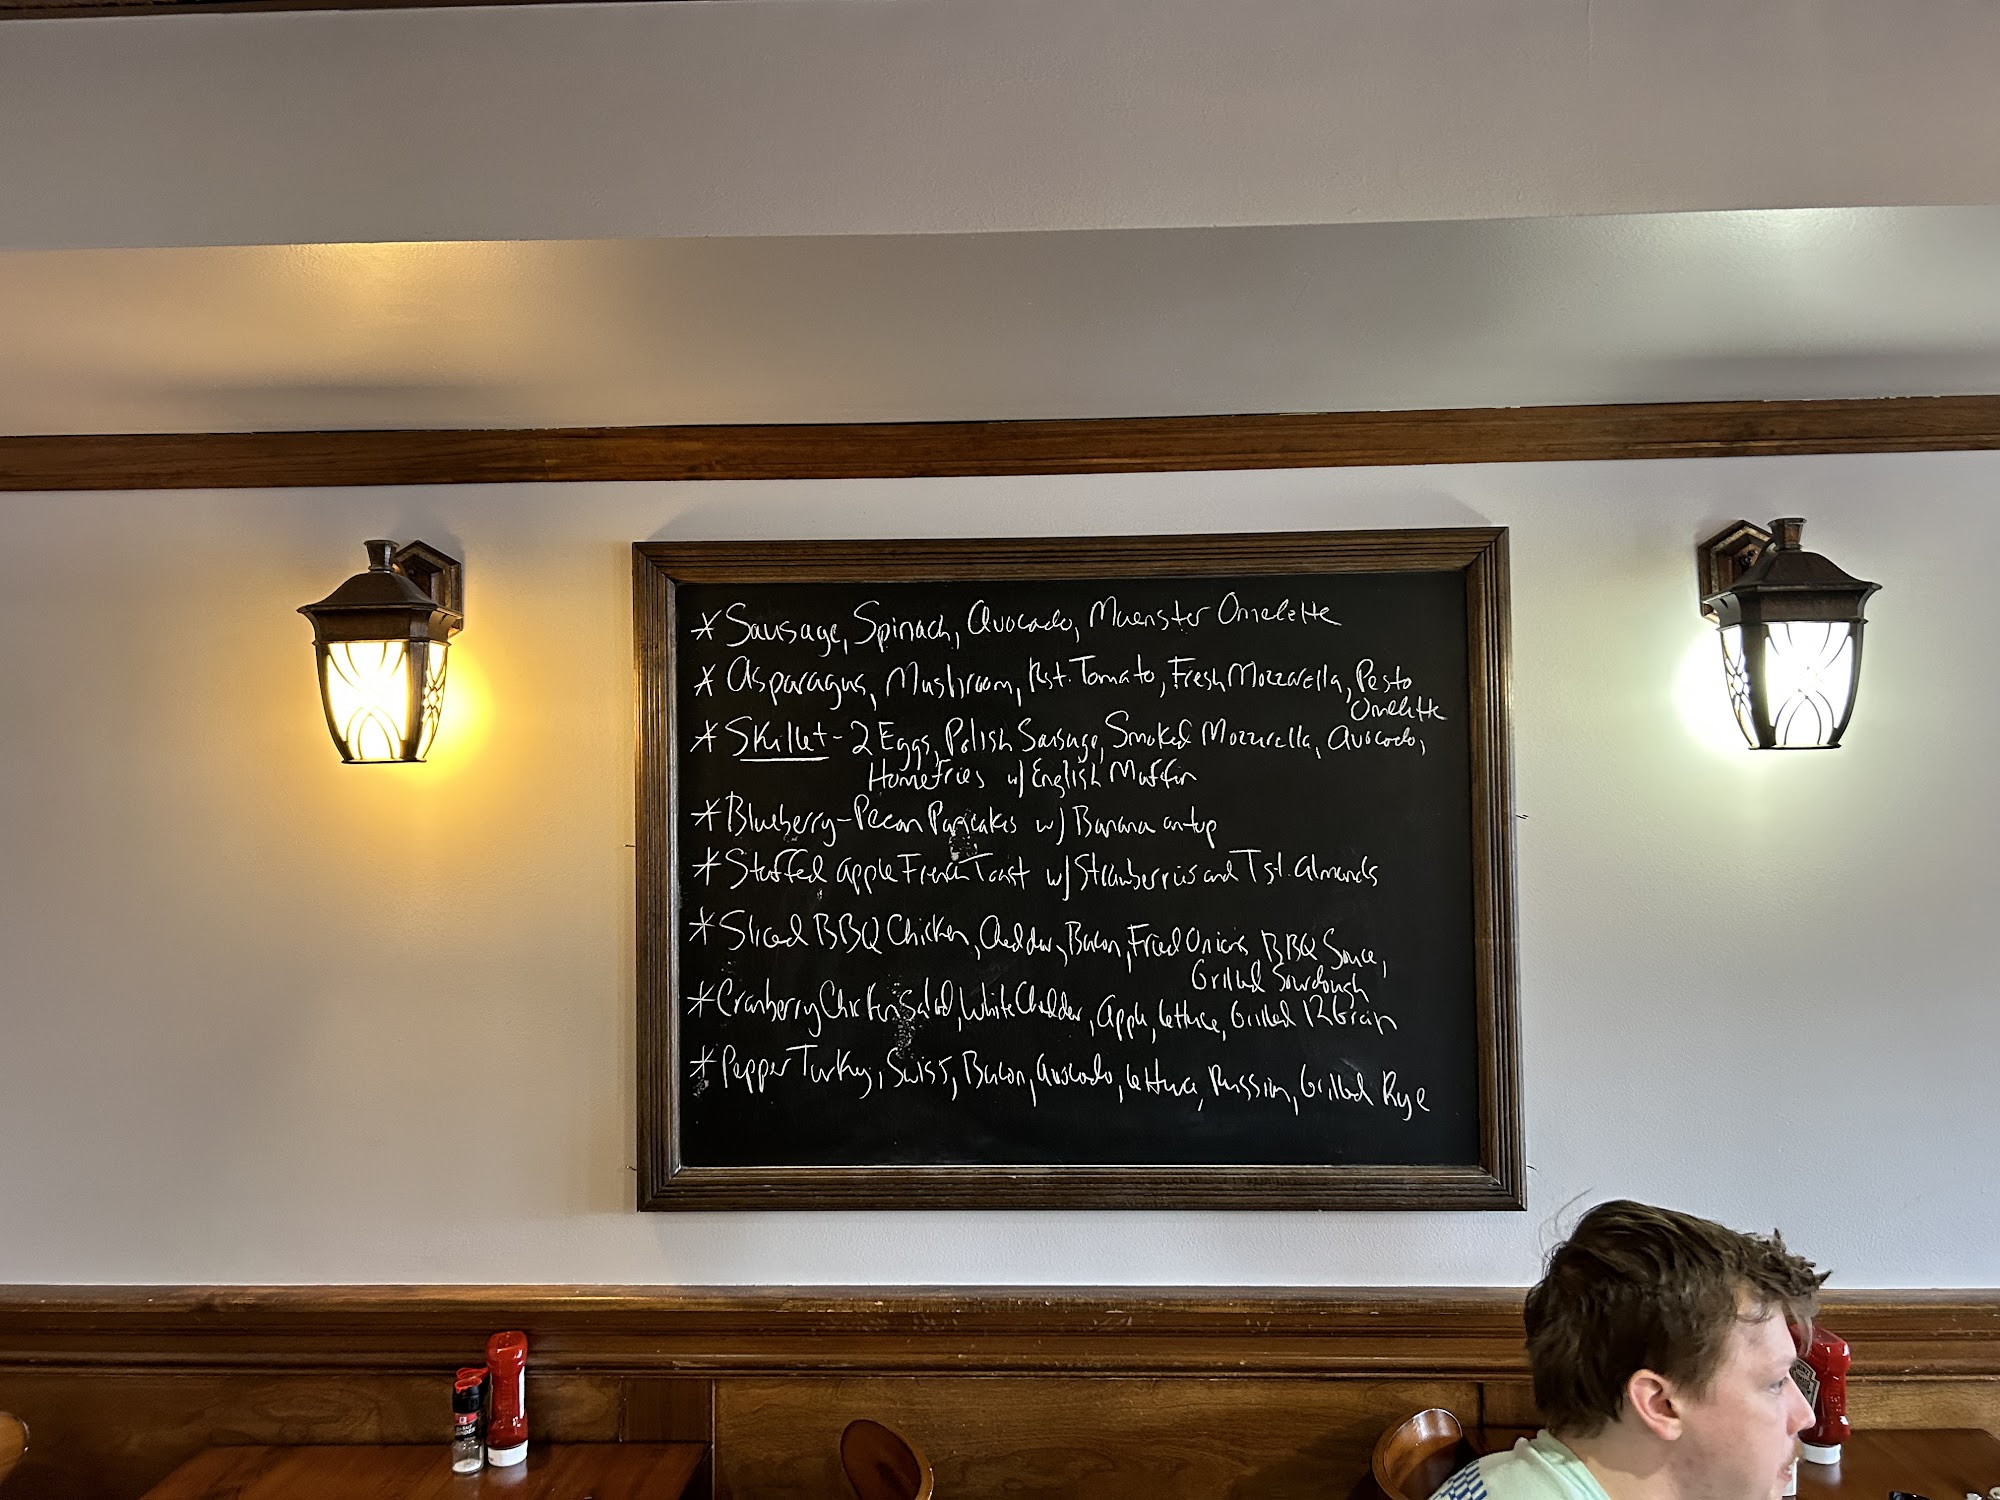 * Sausage, Spinach, Avocado, Muenster Omelette
* Asparagus, Mushroom, Rst. Tomato, Fresh Mozzarella, Pesto
Omelette
* Skillet - 2 Eggs, Polish Sausage, Smoked Mozzarella, Avocado,
Homefries w/ English Muffin
* Blueberry-Pecan Pancakes w/ Banana ontop
* Stuffed Apple French Toast w/ Strawberries and Tst. Almonds
* Sliced BBQ Chicken, Cheddar, Bacon, Fried Onions, BBQ Sauce,
Grilled Sourdough
* Cranberry Chicken Salad, White Cheddar, Apple, Lettuce, Grilled 12 Grain
* Pepper Turkey, Swiss, Bacon, Avocado, Lettuce, Russian, Grilled Rye